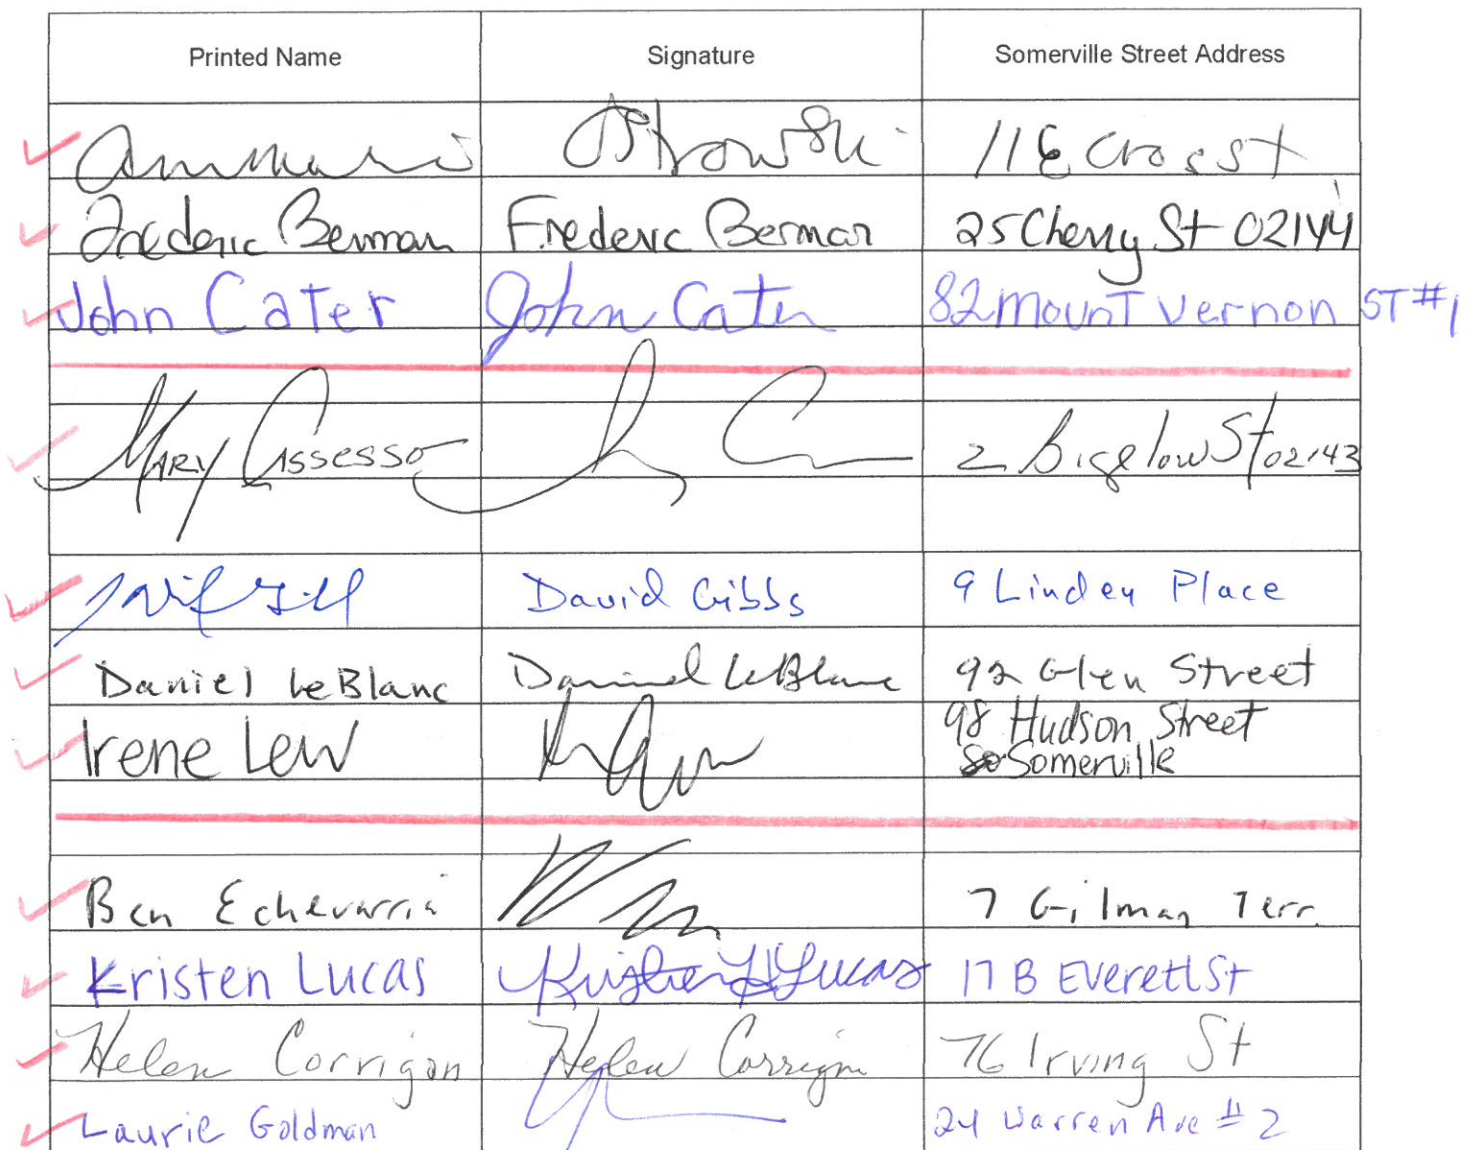 Printed Name Signature Somerville Street Address
Ostrowski 11 E Cross st
Frederic Berman Frederic Berman 25 Cherry St 02144
John Cater John Cater 82 Mount Vernon ST #1
Mary Cassesso 2 Bigelow St 02143
David Gibbs 9 Linden Place
Daniel LeBlanc Daniel LeBlanc 92 Glen Street
Irene Lew 98 Hudson Street
Somerville
Ben Echevarria 7 Gilman Terr.
Kristen Lucas Kristen Lucas 17 B Everett St
Helen Corrigan Helen Corrigan 76 Irving St
Laurie Goldman 24 Warren Ave #2